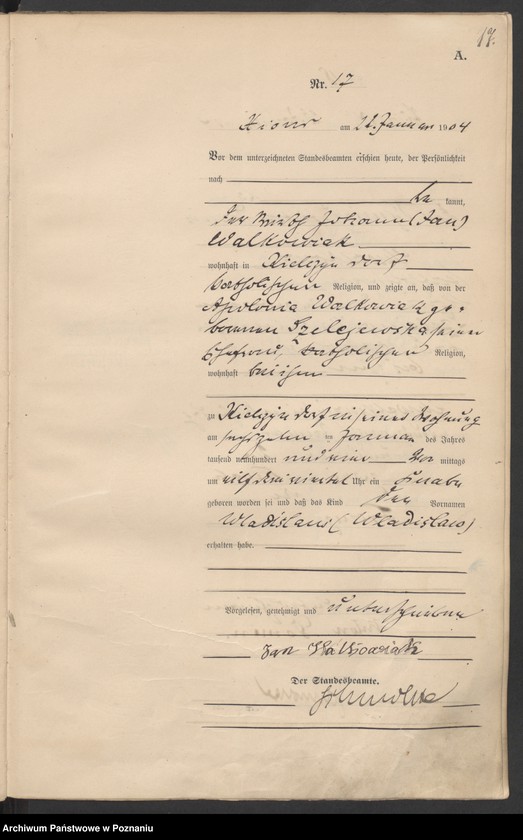 17.
A.
Nr. 17
Xions am 22. Januar 1904
Vor dem unterzeichneten Standesbeamten erschien heute, der Persönlichkeit
nach
be kannt,
der Wirth Johann (Jan)
Walkowiak
wohnhaft in Kielczyn dorf
katholischen Religion, und zeigte an, daß von der
Apolonia Walkowiak ge-
borenen Szelejewska seiner
Ehefrau, katholischen Religion,
wohnhaft bei ihm
zu Kielczyn dorf in seiner Wohnung
am sechszehnten Januar des Jahres
tausend neunhundert und vier Vor mittags
um elf dreiviertel Uhr ein Knabe
geboren worden sei und daß das Kind den Vornamen
Wladislaus (Wladislaw)
erhalten habe.
Vorgelesen, genehmigt und unterschrieben
Jan Walkowiak
Der Standesbeamte.
Archiwum Państwowe w Poznaniu